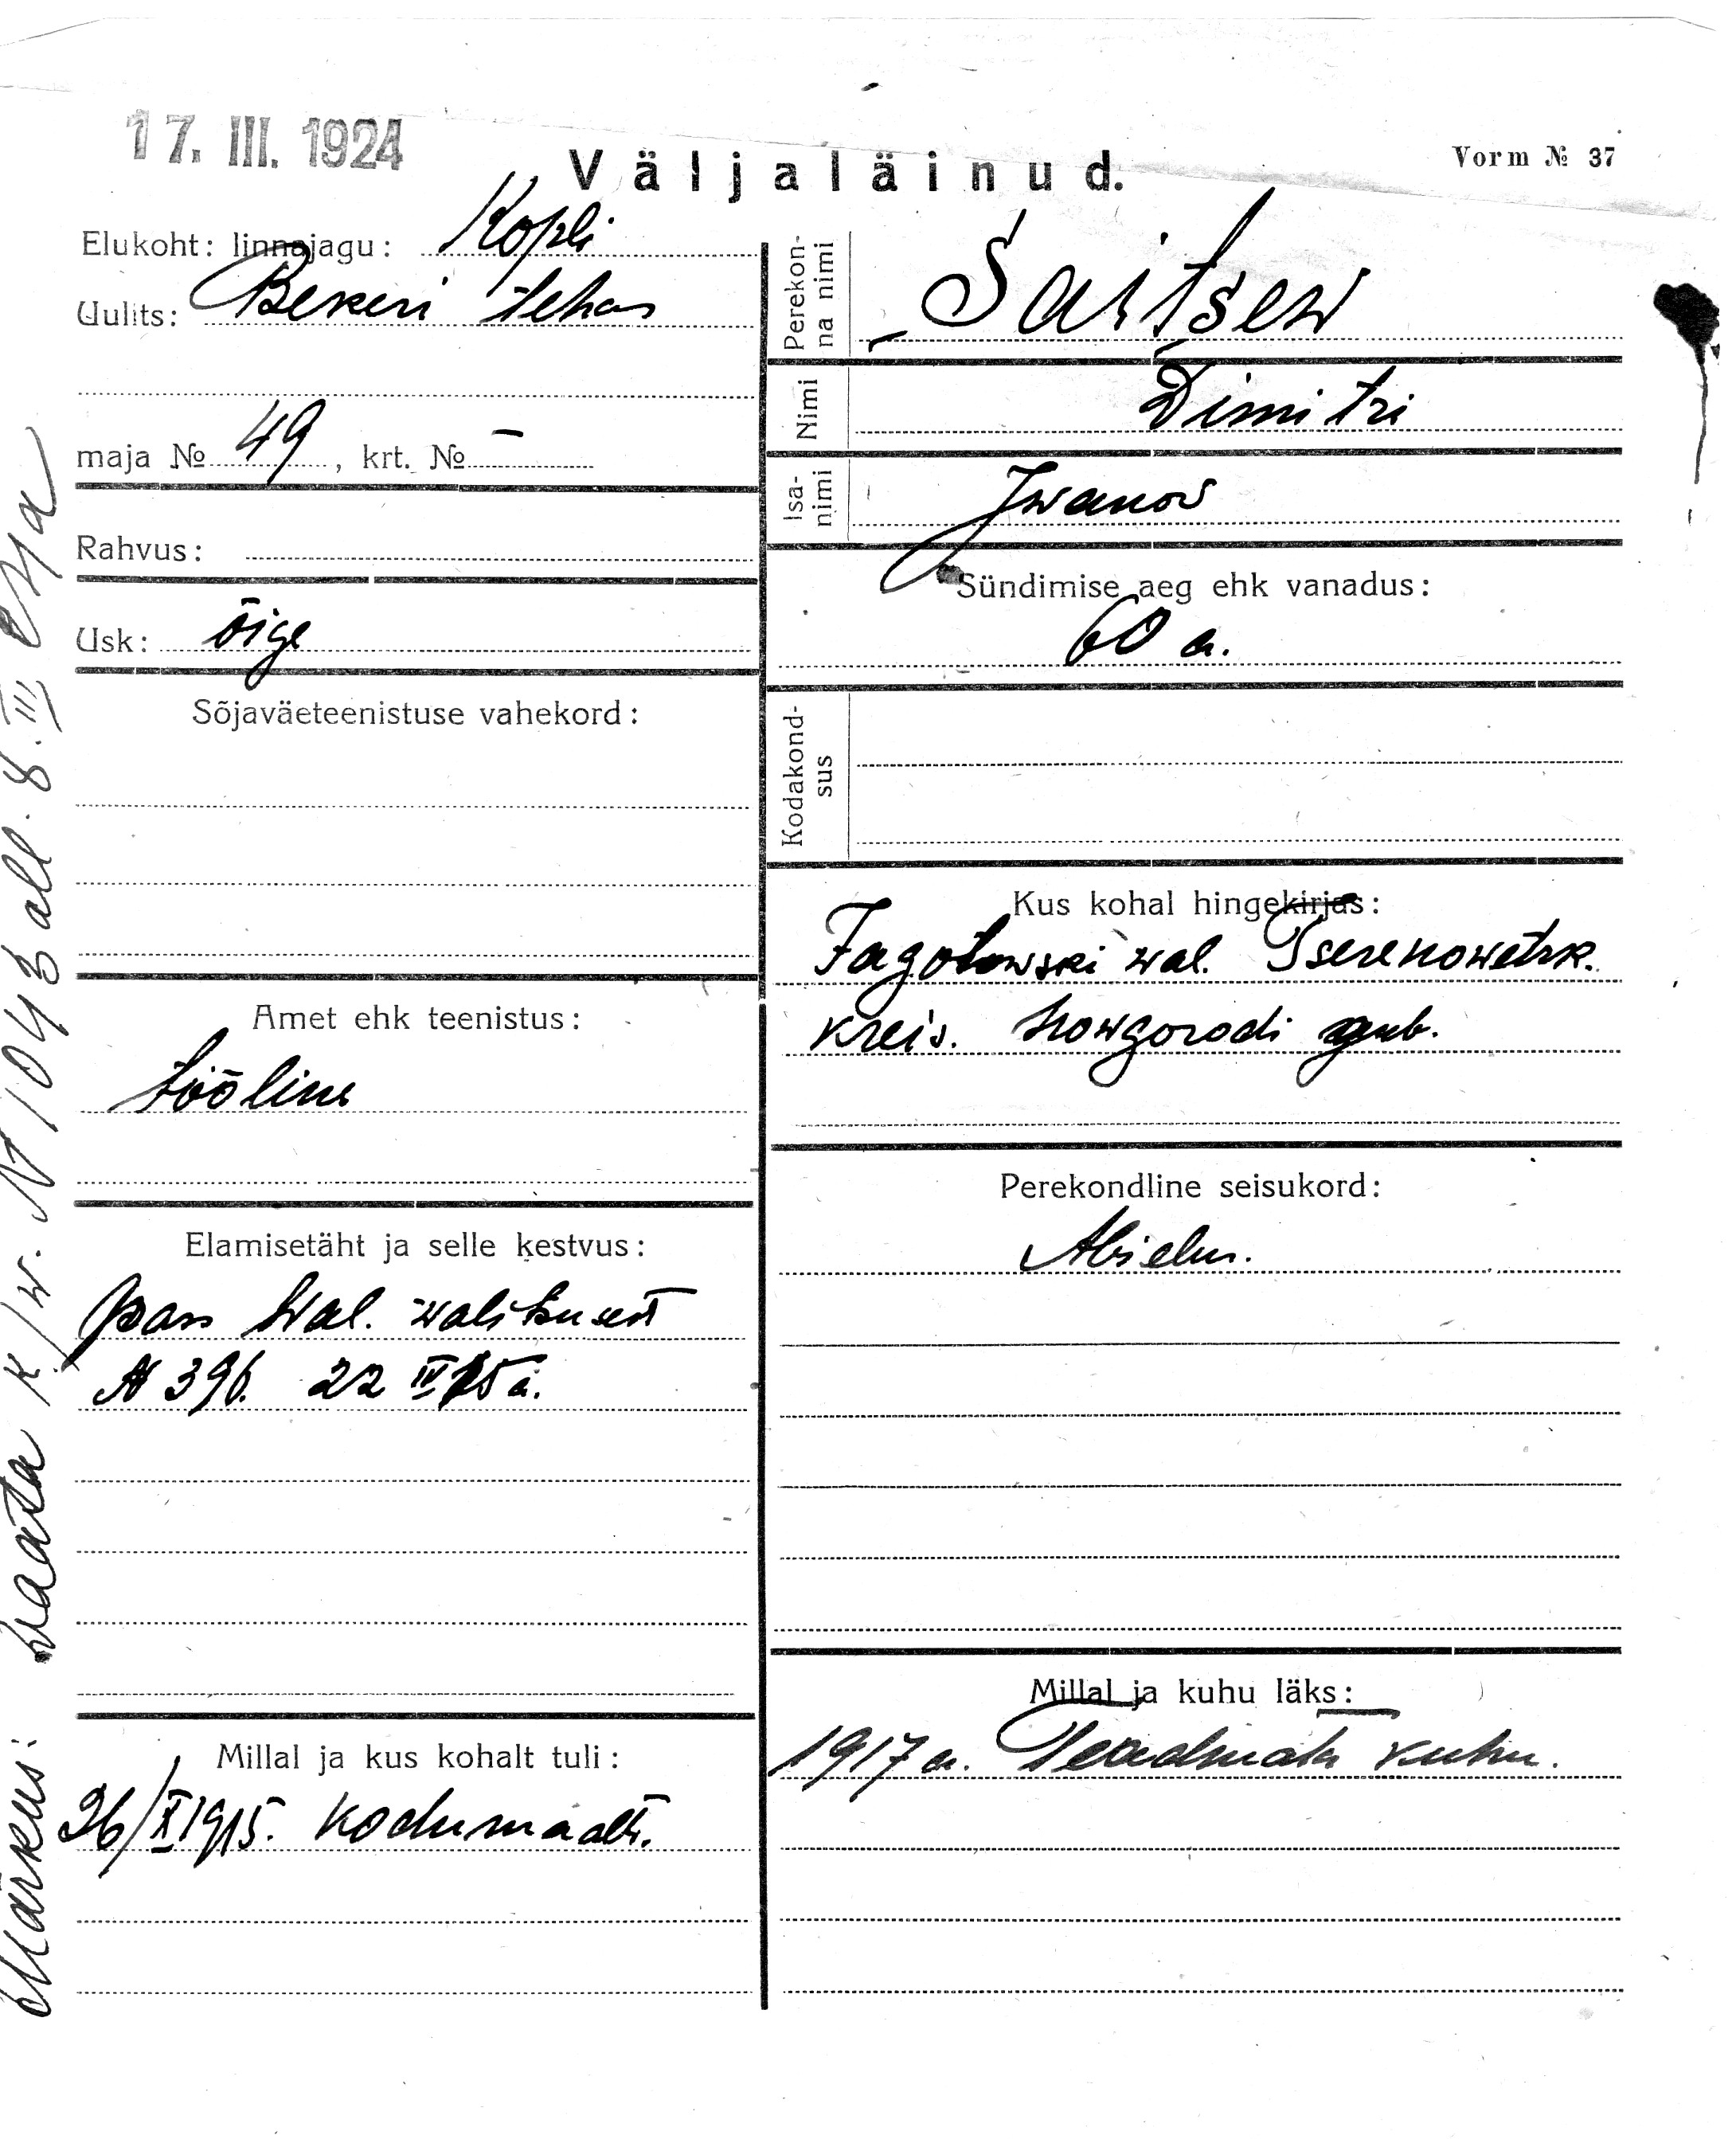 17. III. 1924
Väljaläinud.
Vorm № 37
Elukoht: linnajagu: Kopli
Uulits: Bekeri tehas
maja № 49, krt. № –
Rahvus:
Usk: õige
Sõjaväeteenistuse vahekord:
Amet ehk teenistus:
tööline
Elamisetäht ja selle kestvus:
pass wal. walitsuselt
№ 396. 22 IV 15 a.
Millal ja kus kohalt tuli:
26/X 1915. kodumaalt.
Perekonna-
na nimi
Saitsew
Nimi
Dimitri
Isa-
nimi
Iwanow
Sündimise aeg ehk vanadus:
60 a.
Kodakond-
sus
Kus kohal hingekirjas:
wal. Tserenowetsk.
kreis. Nowgorodi gub.
Perekondline seisukord:
Abielus.
Millal ja kuhu läks:
1917 a. Teadmata kuhu.
Märkus: waata K/w. № 1043 all. 8. III